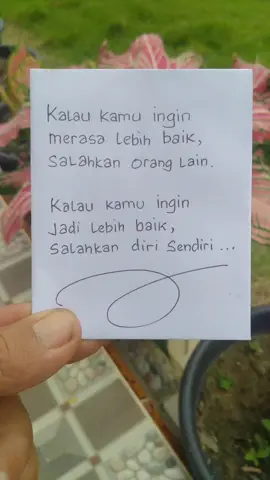 Kalau kamu ingin
merasa lebih baik,
salahkan orang lain.
Kalau kamu ingin
jadi lebih baik,
salahkan diri sendiri ...